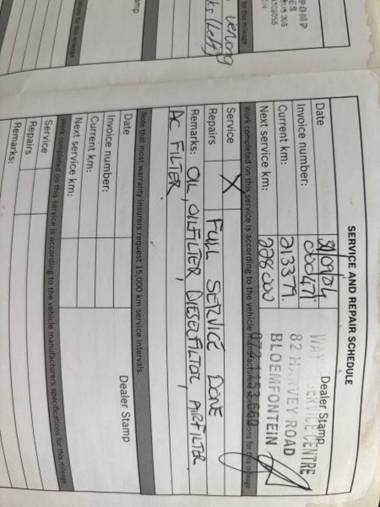 SERVICE AND REPAIR SCHEDULE
Date
Invoice number:
Current km: 213379.
Next service km: 228000
Dealer Stamp
SERVICE CENTRE
82 HARVEY ROAD
BLOEMFONTEIN
Work completed on this service is according to the vehicle
for this mileage
Service X
Repairs FULL SERVICE DONE
Remarks: OIL, OILFILTER, DIESELFILTER, AIRFILTER,
AC FILTER.
Note that most warranty insurers request 15,000 km service intervals.
Date
Invoice number:
Current km:
Next service km:
Dealer Stamp
Work completed on this service is according to the vehicle manufacturers specifications for this mileage
Service
Repairs
Remarks: